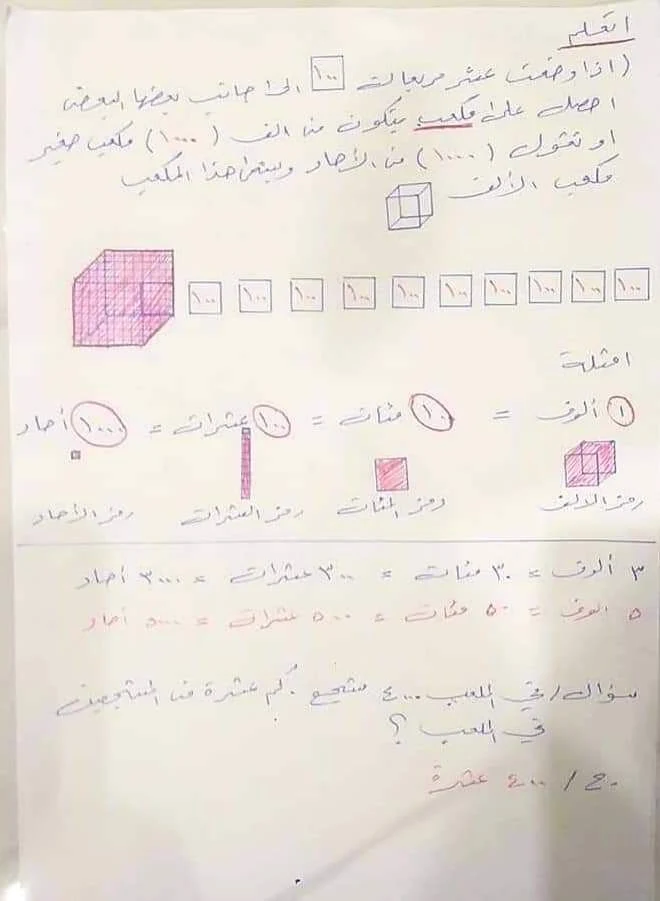 اتعلم
(اذا وضعت عشر مربعات ١٠٠ الى جانب بعضها البعض
احصل على مكعب يتكون من الف (١٠٠٠) مكعب صغير
او نقول (١٠٠٠) من الأحاد ويسمى هذا المكعب
مكعب الألف
١٠٠ ١٠٠ ١٠٠ ١٠٠ ١٠٠ ١٠٠ ١٠٠ ١٠٠ ١٠٠ ١٠٠
امثلة
١ ألوف = ١٠ مئات = ١٠٠ عشرات = ١٠٠٠ أحاد
رمز الالف رمز المئات رمز العشرات رمز الأحاد
٣ ألوف = ٣٠ مئات = ٣٠٠ عشرات = ٣٠٠٠ أحاد
٥ الوف = ٥٠ مئات = ٥٠٠ عشرات = ٥٠٠٠ أحاد
سؤال / في الملعب ٤٠٠٠ مشجع . كم عشرة من المشجعين
في الملعب ؟
ج / ٤٠٠ عشرة